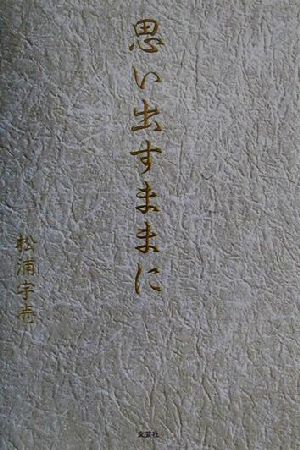 思い出すままに
松浦宇壱
文芸社